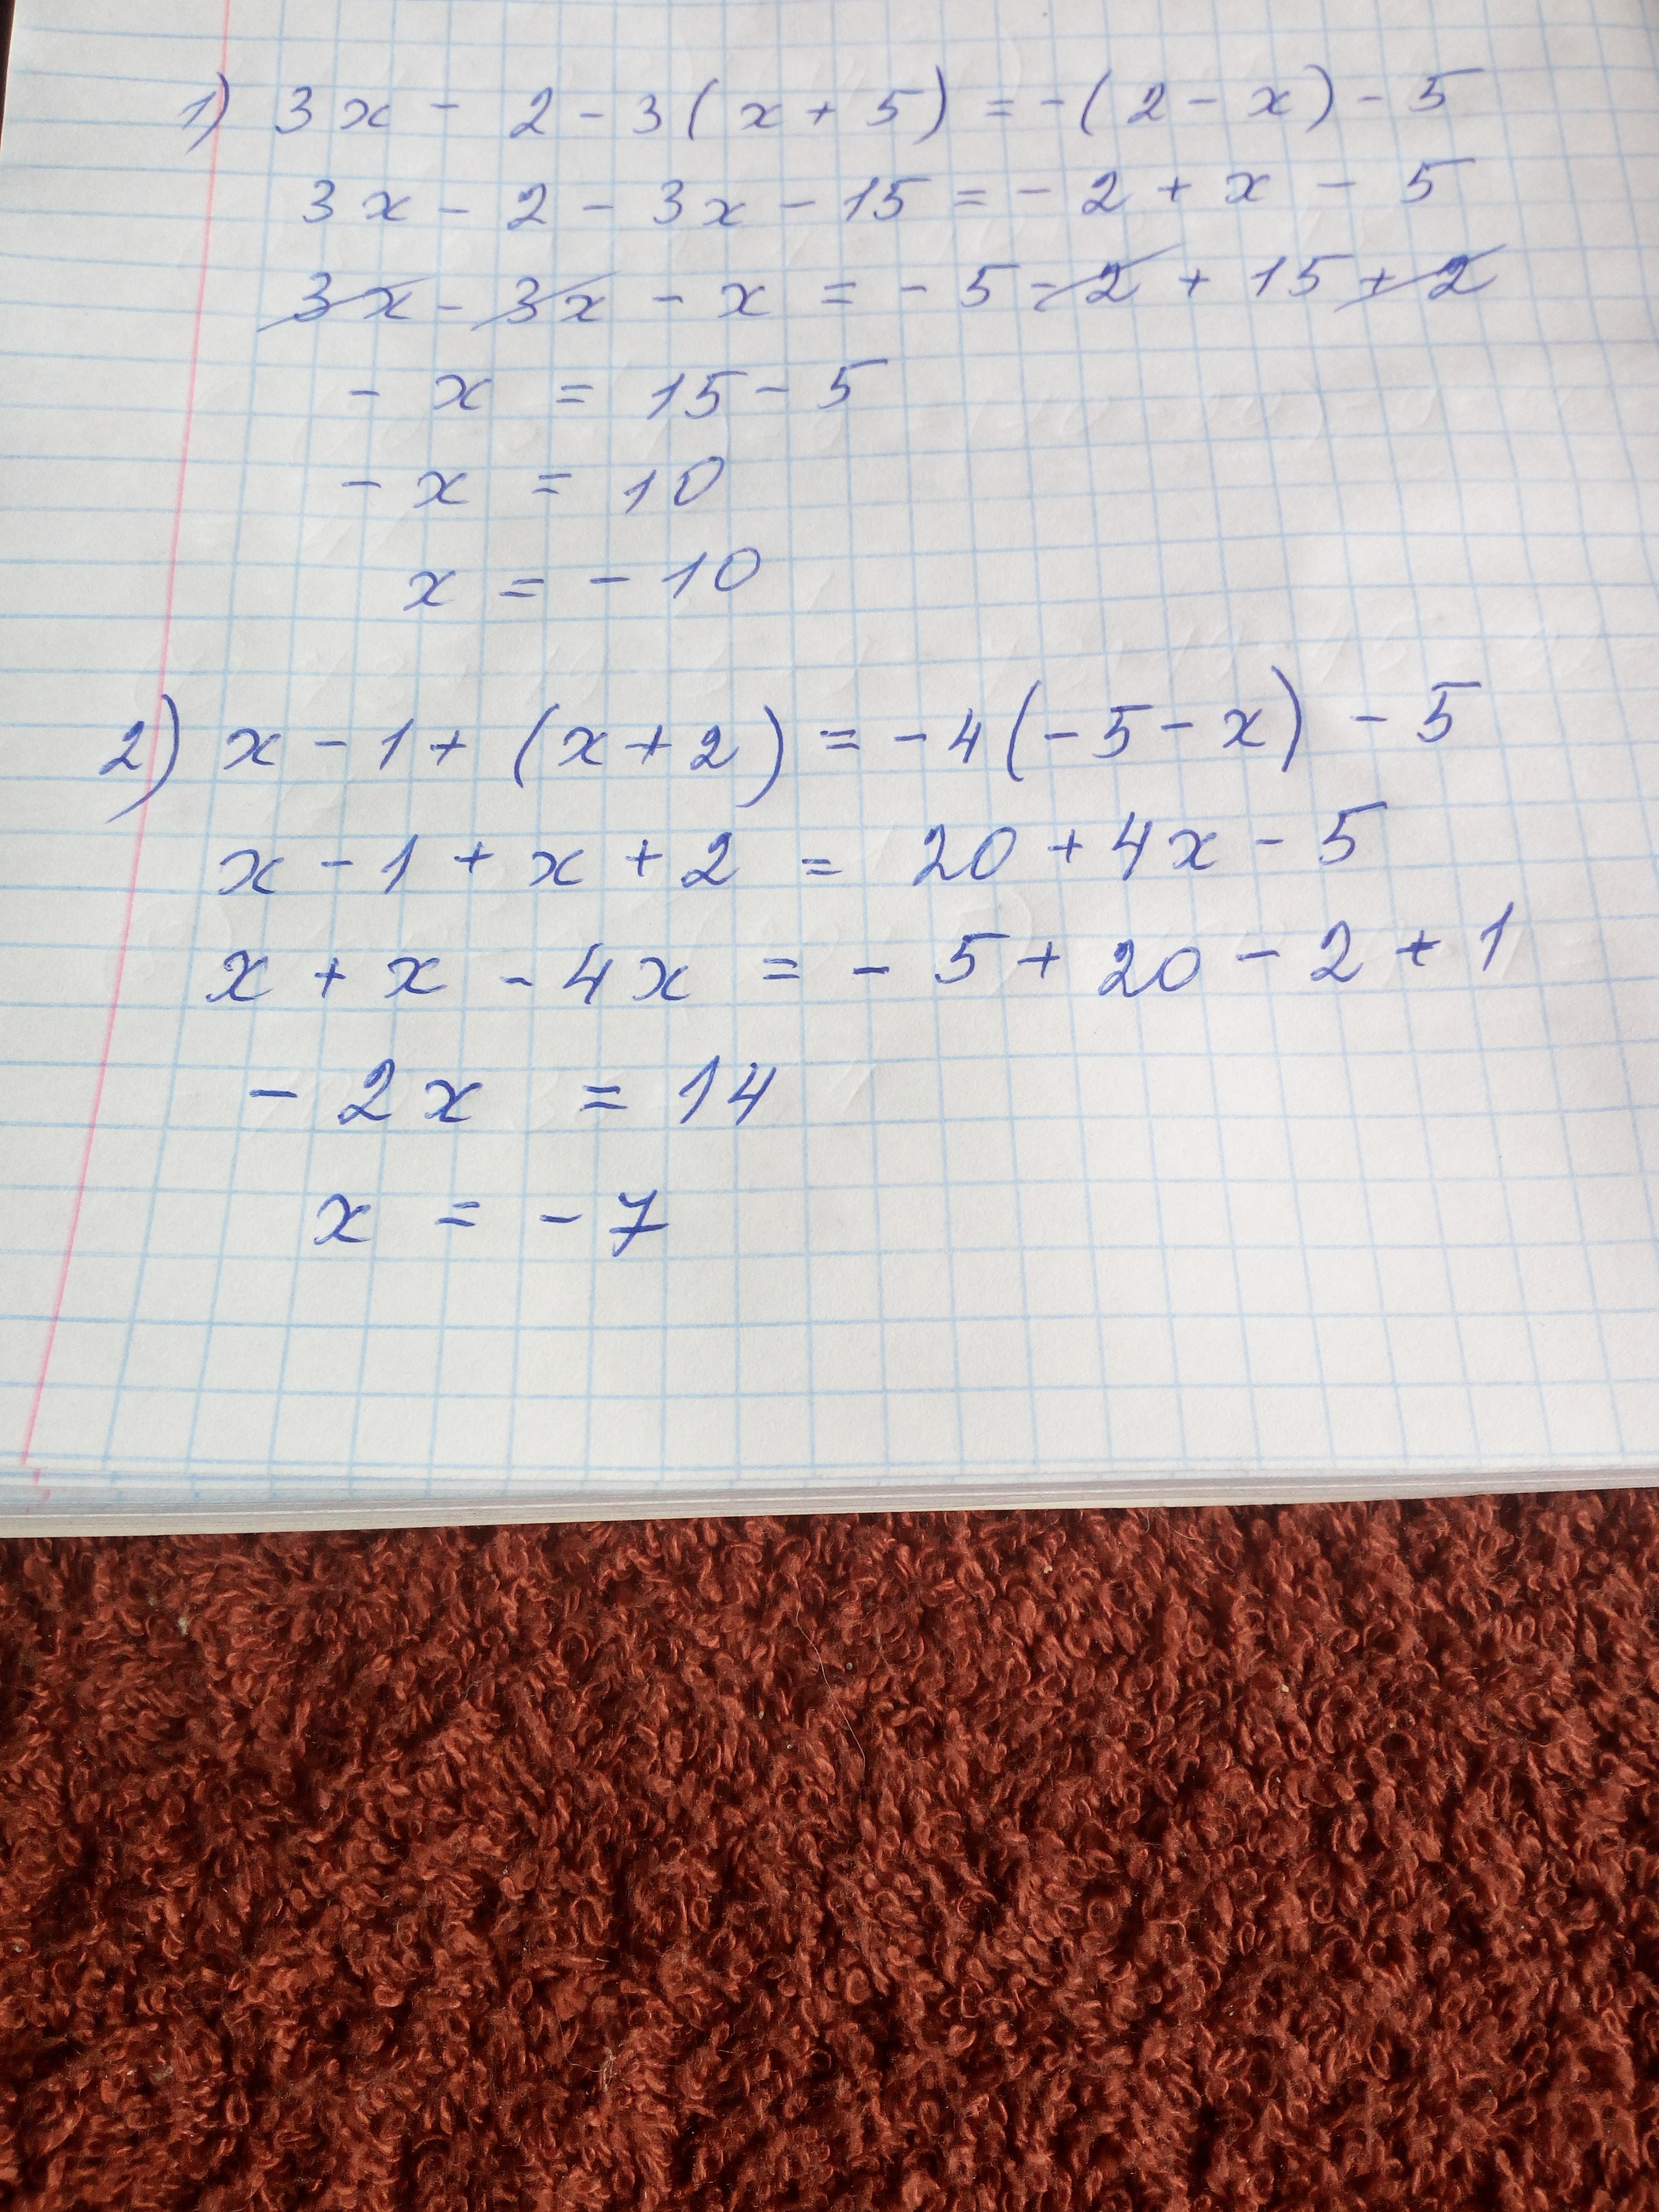 1) 3x - 2 - 3(x + 5) = -(2 - x) - 5
3x - 2 - 3x - 15 = - 2 + x - 5
3x - 3x - x = - 5 - 2 + 15 + 2
- x = 15 - 5
- x = 10
x = - 10
2) x - 1 + (x + 2) = - 4(-5 - x) - 5
x - 1 + x + 2 = 20 + 4x - 5
x + x - 4x = - 5 + 20 - 2 + 1
- 2x = 14
x = - 7